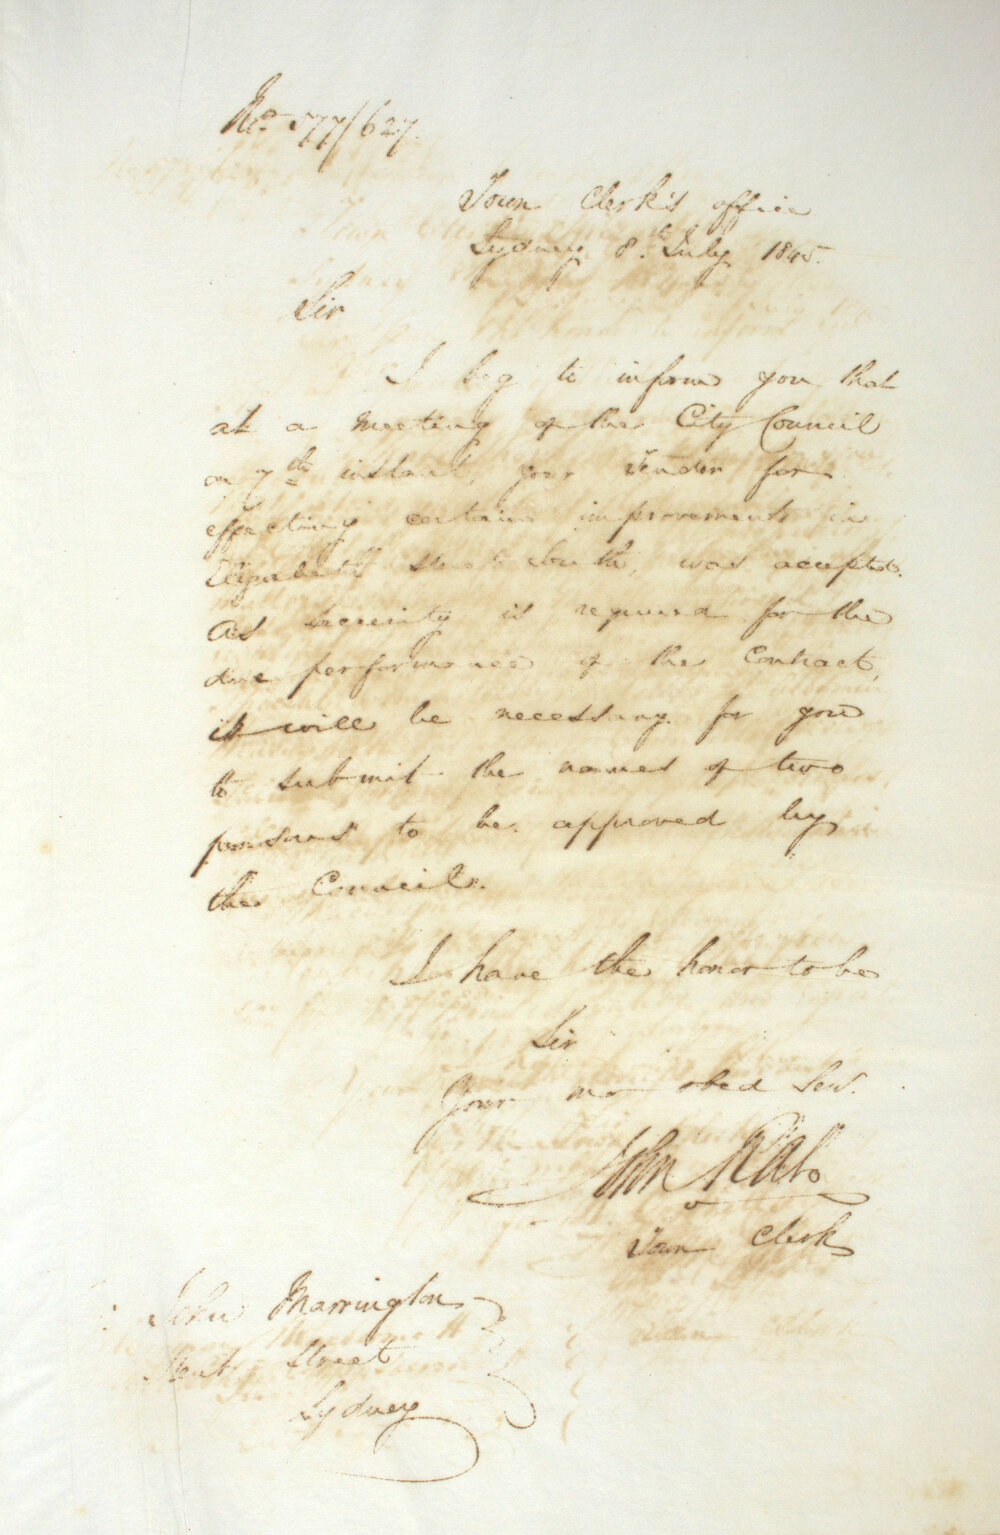 No. 577/627.
Town Clerk's office
Sydney 8th July 1845.
Sir
I beg to inform you that
at a meeting of the City Council
on 7th instant, your Tender for
effecting certain improvements in
Elizabeth Street South, was accepted.
As security is required for the
due performance of the Contract,
it will be necessary for you
to submit the names of two
persons to be approved by
the Council.
I have the honor to be
Sir
Your mo obed Serv.
John Rae
Town Clerk
John Marrington
Kent Street
Sydney